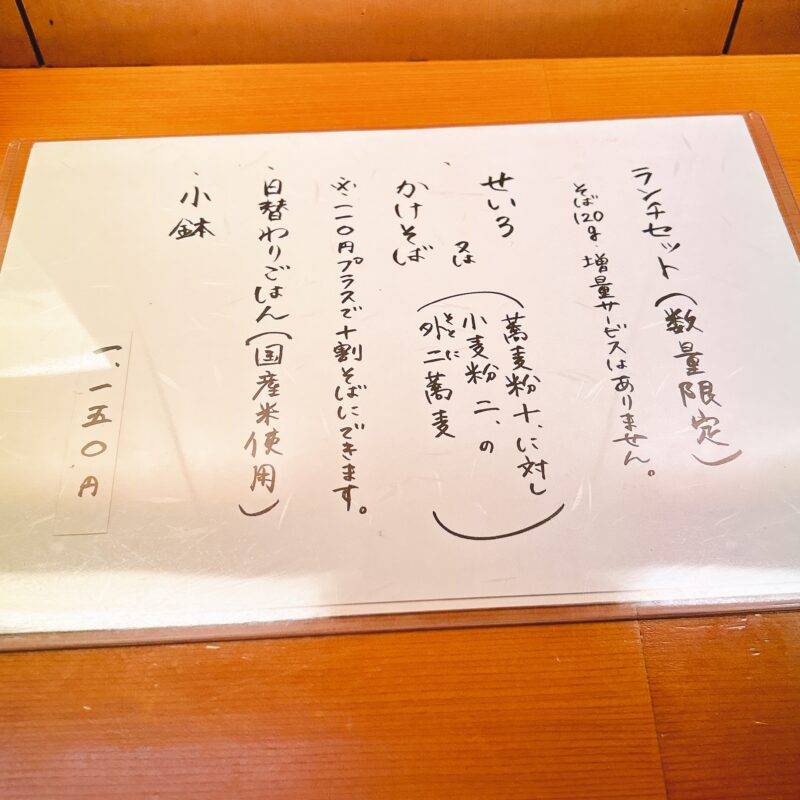 ランチセット（数量限定）
そば120g 増量サービスはありません。
・せいろ
又は
かけそば
（蕎麦粉十、に対し
小麦粉二、の
外二蕎麦）
そとに
※一一〇円プラスで十割そばにできます。
・日替わりごはん（国産米使用）
・小鉢
一、一五〇円